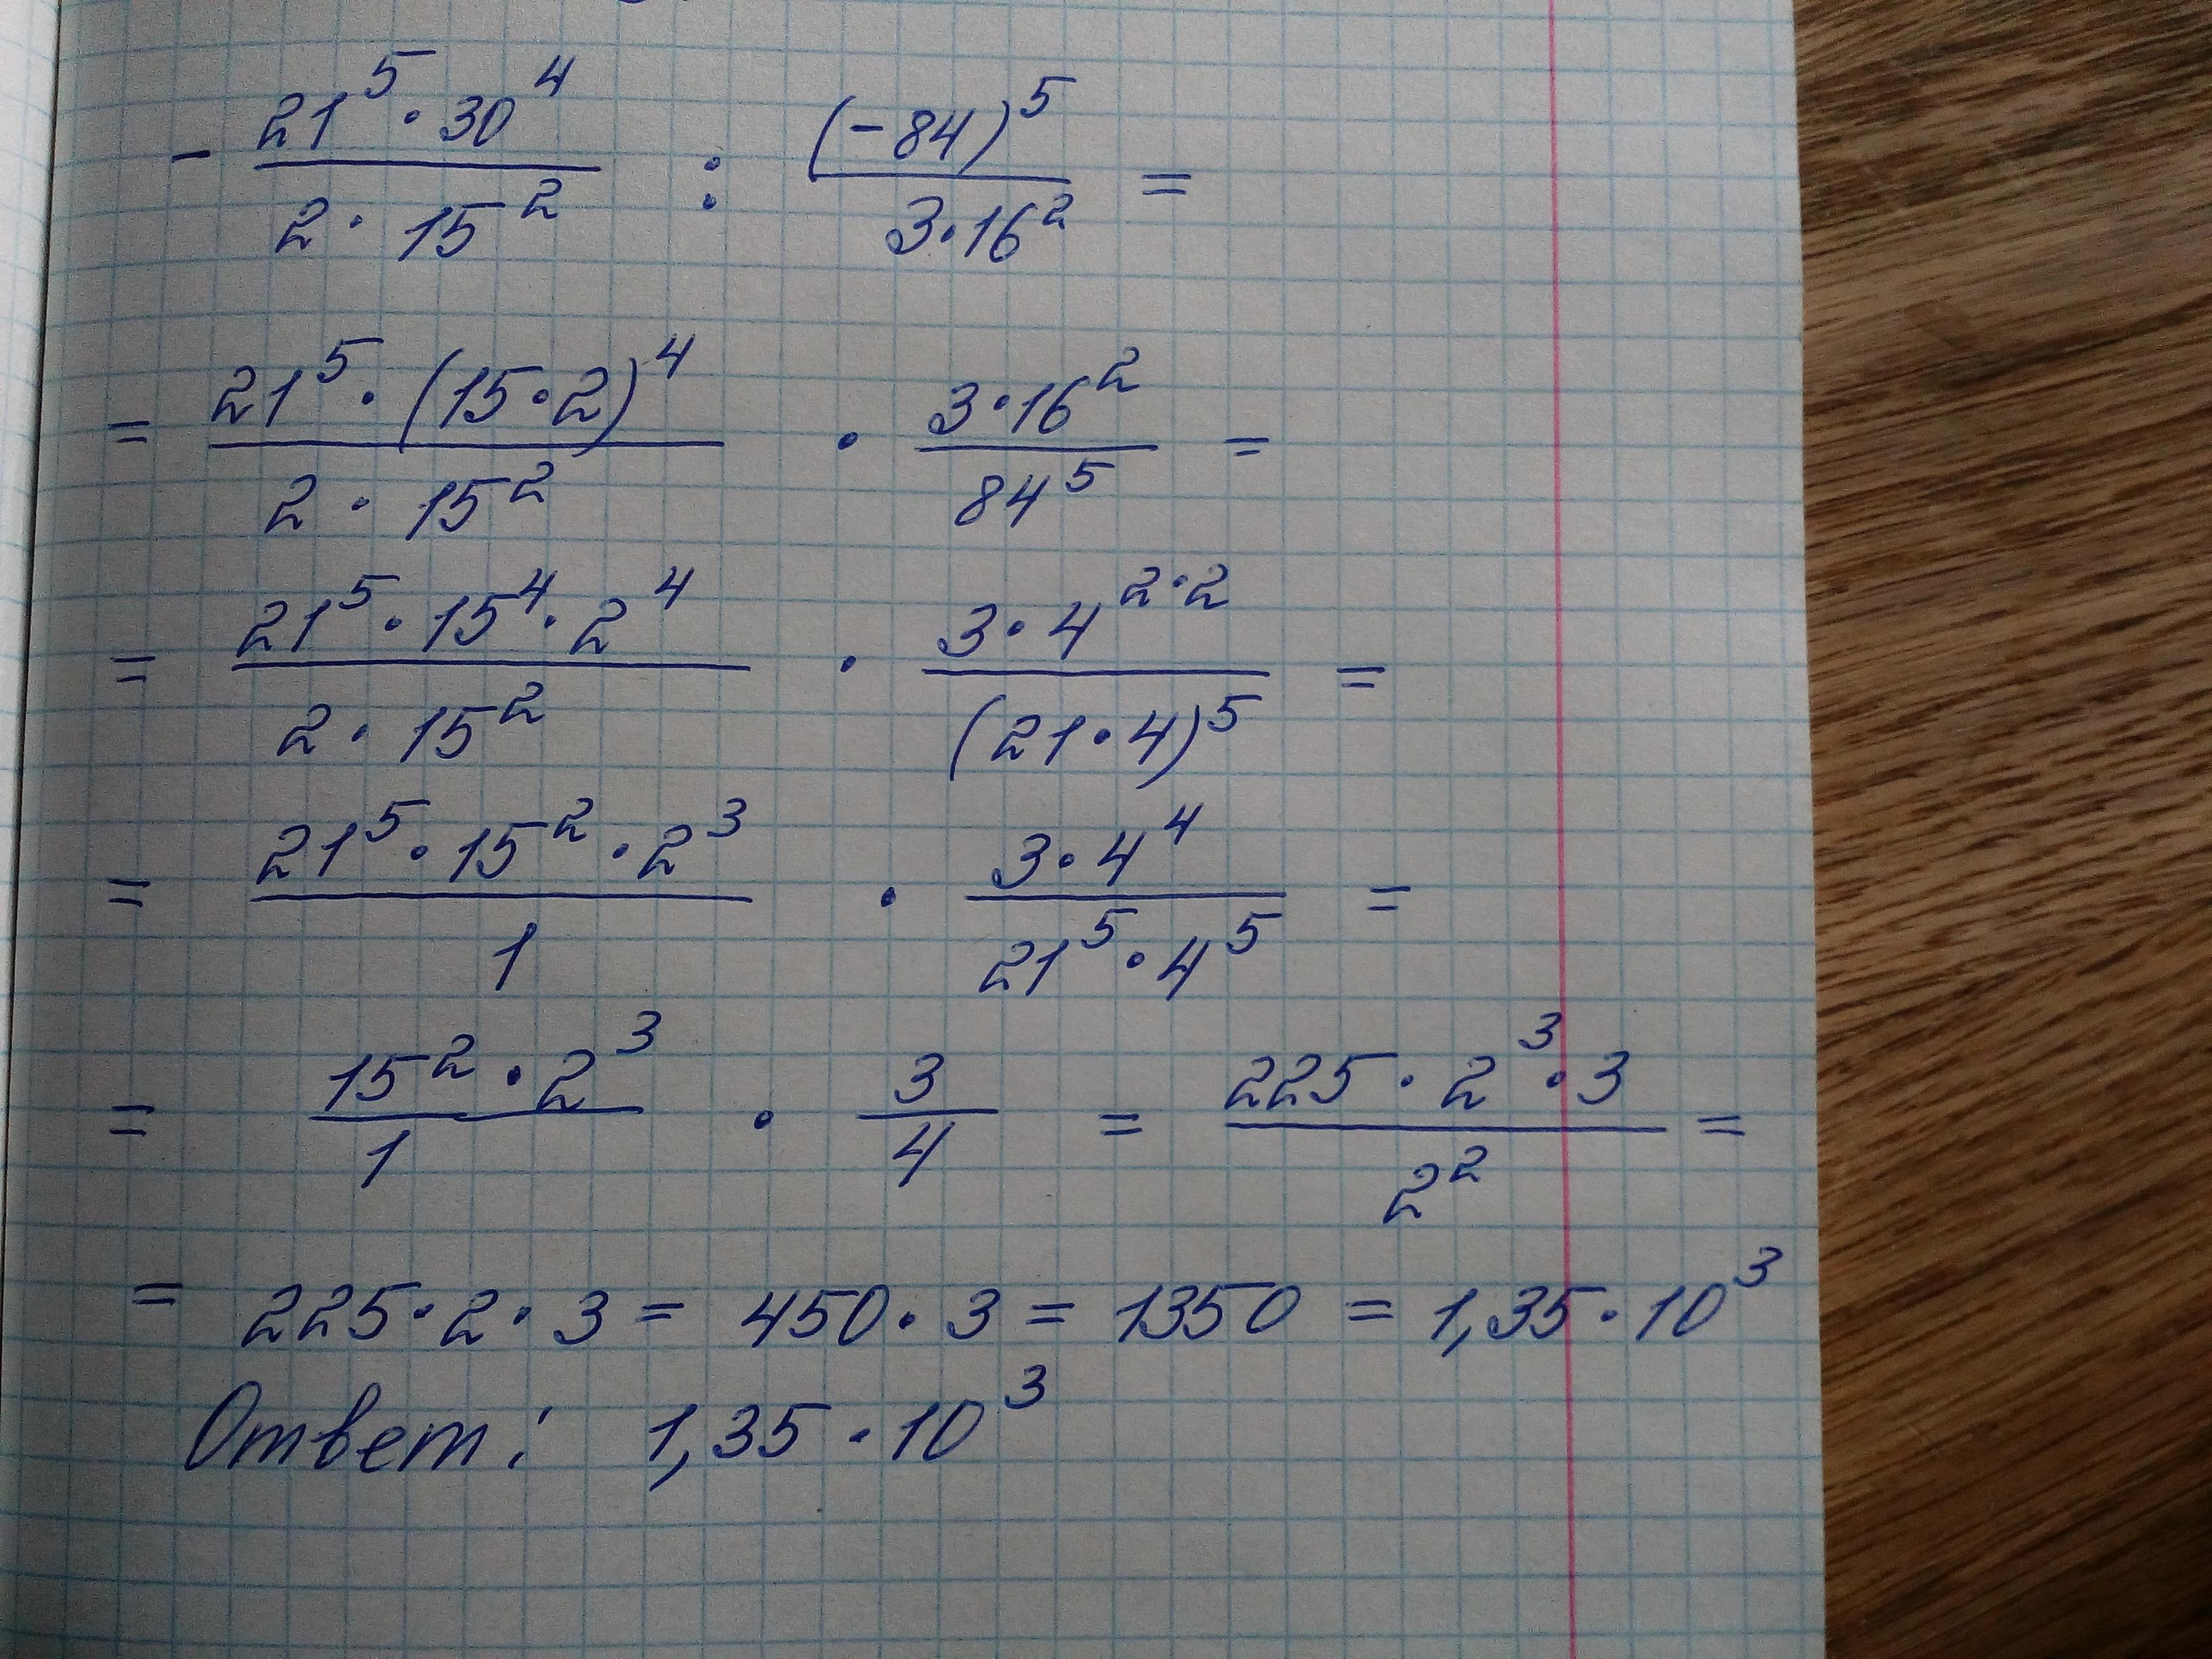 - 21^5 · 30^4 / 2 · 15^2 : (-84)^5 / 3 · 16^2 =
= 21^5 · (15 · 2)^4 / 2 · 15^2 · 3 · 16^2 / 84^5 =
= 21^5 · 15^4 · 2^4 / 2 · 15^2 · 3 · 4^{2·2} / (21 · 4)^5 =
= 21^5 · 15^2 · 2^3 / 1 · 3 · 4^4 / 21^5 · 4^5 =
= 15^2 · 2^3 / 1 · 3 / 4 = 225 · 2^3 · 3 / 2^2 =
= 225 · 2 · 3 = 450 · 3 = 1350 = 1,35 · 10^3
Ответ: 1,35 · 10^3